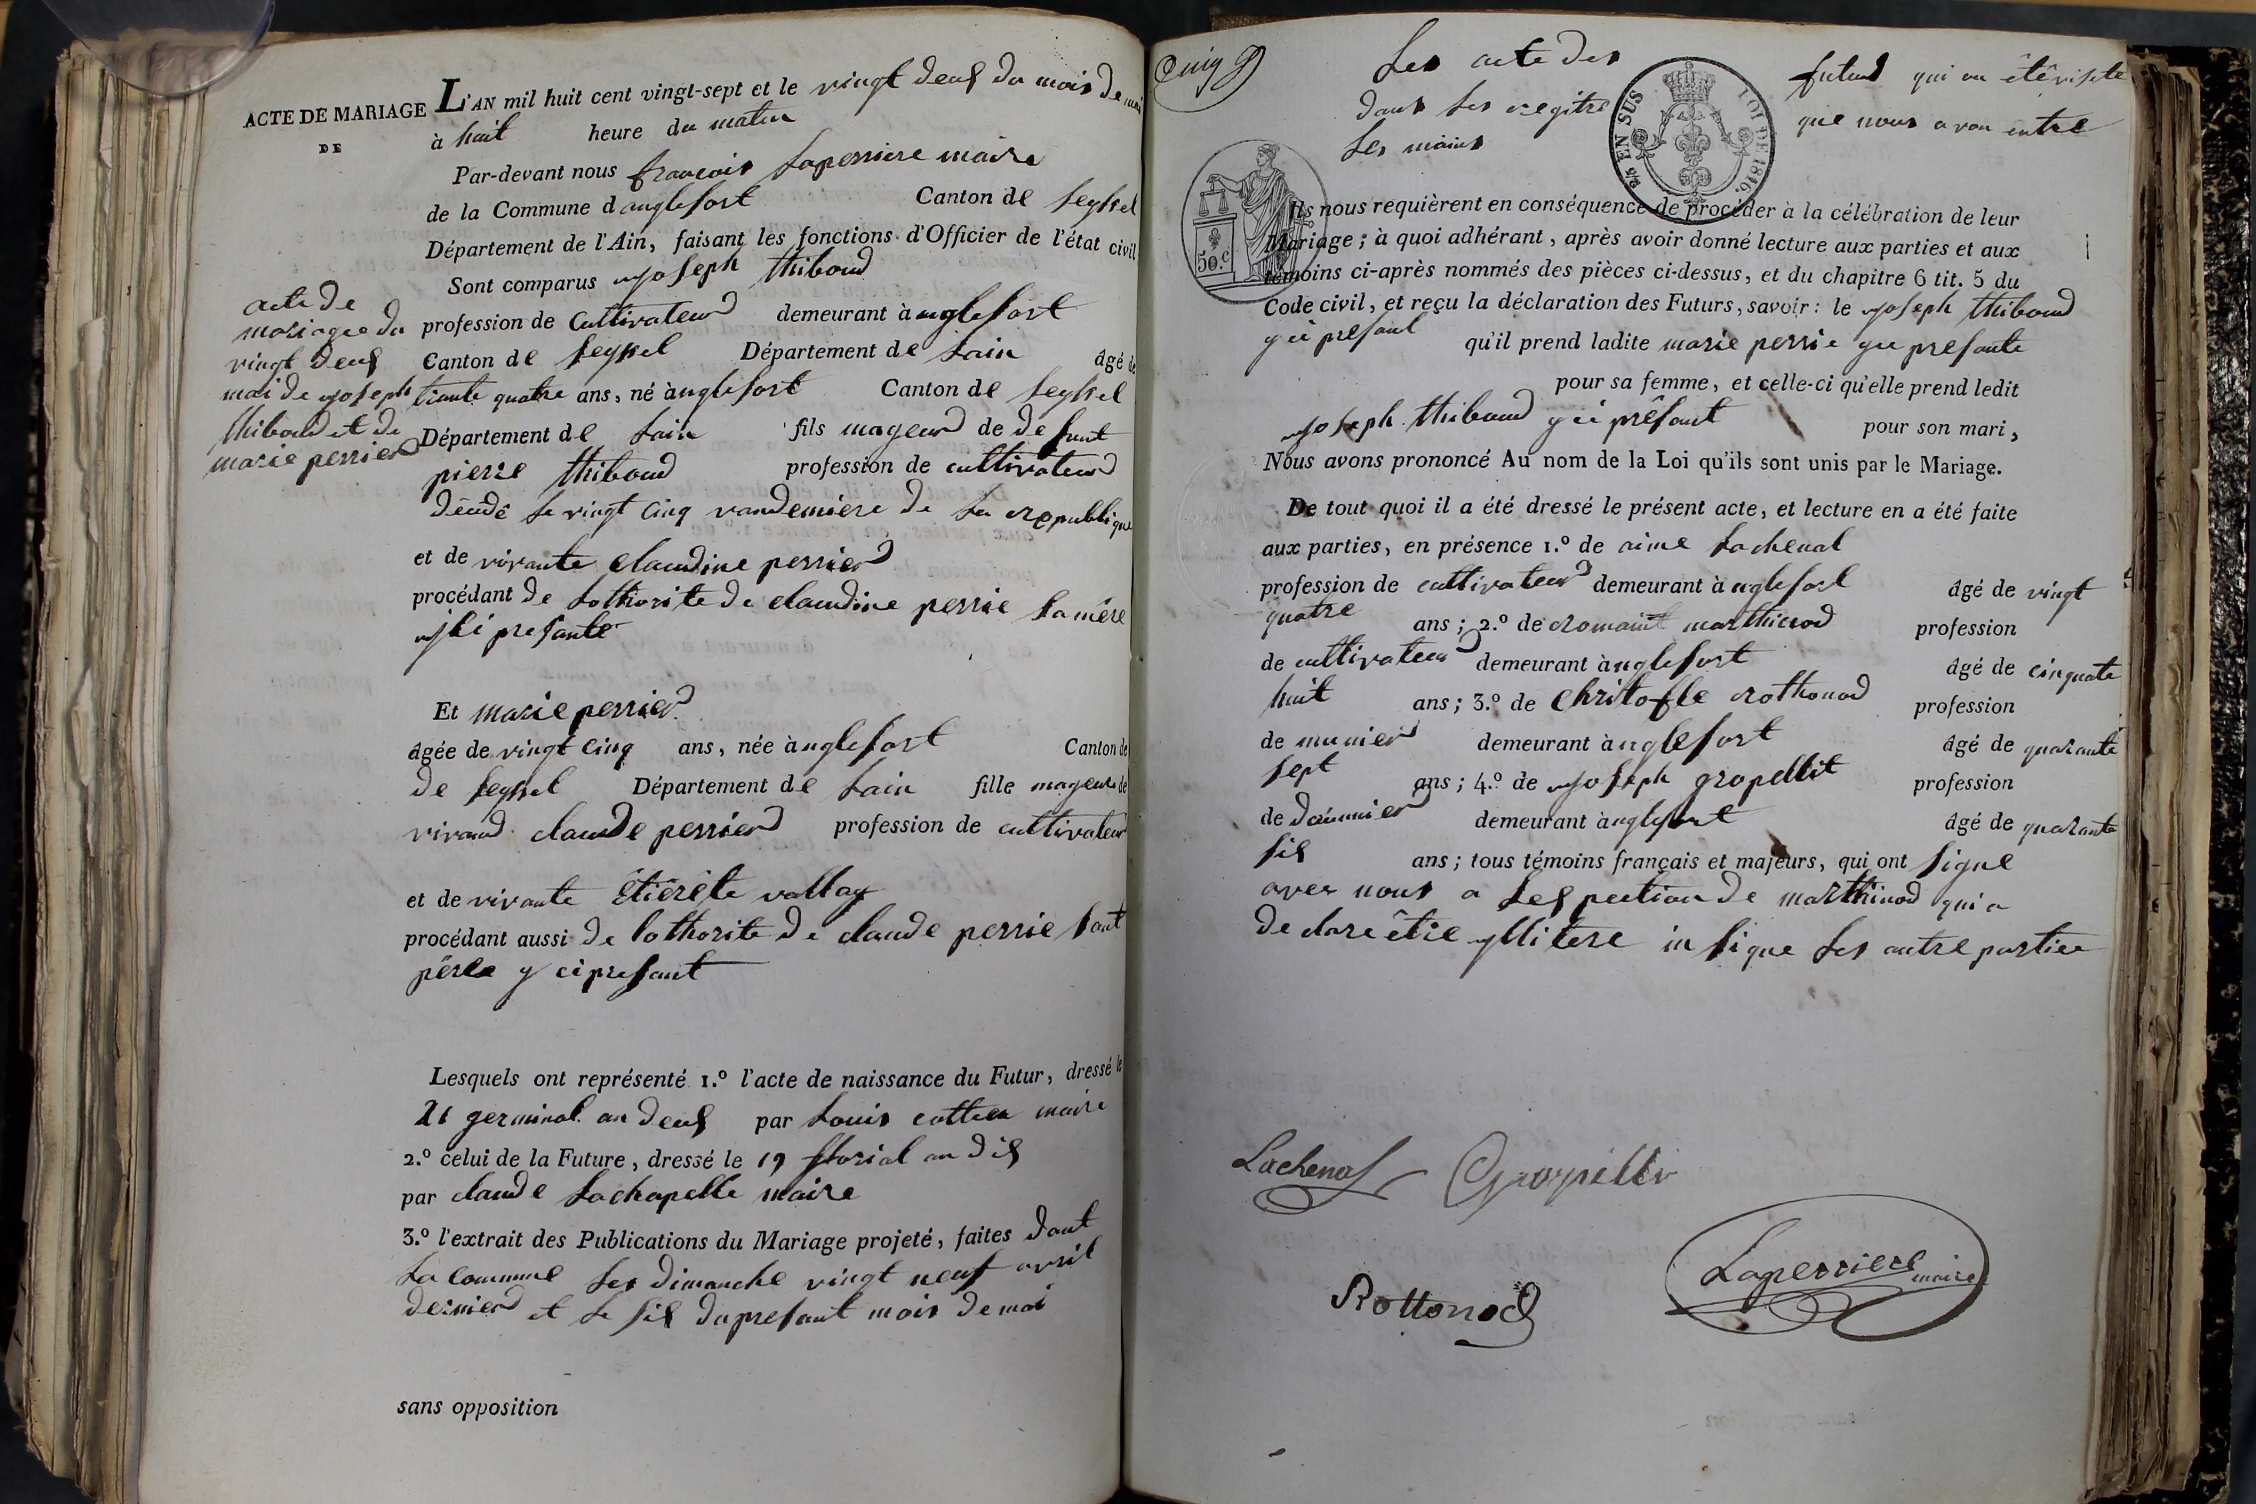 ACTE DE MARIAGE
DE
acte de
mariagee du
vingt deus
mai de joseph
thiboud et de
marie perrier
L'AN mil huit cent vingt-sept et le vingt deus du mois de mai
à huit heure du matin
Par-devant nous francois Laperriere maire
de la Commune d anglefort Canton de seyssel
Département de l'Ain, faisant les fonctions d'Officier de l'état civil
Sont comparus joseph thiboud
profession de Cultivateur demeurant à nglefort
Canton de seyssel Département de Lain âgé de
trante quatre ans, né à nglefort Canton de seyssel
Département de Lain fils mageur de defunt
pierre thiboud profession de cultivateur
décédé le vingt cinq vandemiere de La republique
et de vivante claudine perrier
procédant de Lothorite de claudine perrie sa mere
presante
Et marie perrier
âgée de vingt cinq ans, née à nglefort Canton de
de seyssel Département de Lain fille mageure de
vivand claude perrier profession de cultivateur
et de vivante vallay
procédant aussi de lothorite de claude perrie sont
pere y ci presant
Lesquels ont représenté 1.º l'acte de naissance du Futur, dressé le
21 germinal an deus par Louis cottin maire
2.º celui de la Future, dressé le 19 florial an dis
par claude Lachapelle maire
3.º l'extrait des Publications du Mariage projeté, faites dant
La commune Les dimanche vingt neuf avril
dernier et le sis du presant mois de mai
sans opposition
Les acte des futurs qui on été visete
dans Les regitre que nous avon entre
Les mains
2/5 EN SUS LOI DE 1816.
50.c
Ils nous requièrent en conséquence de procéder à la célébration de leur
Mariage; à quoi adhérant, après avoir donné lecture aux parties et aux
témoins ci-après nommés des pièces ci-dessus, et du chapitre 6 tit. 5 du
Code civil, et reçu la déclaration des Futurs, savoir: le joseph thiboud
y ci presant qu'il prend ladite marie perrie y ci presante
pour sa femme, et celle-ci qu'elle prend ledit
joseph thiboud y ci présant pour son mari,
Nous avons prononcé Au nom de la Loi qu'ils sont unis par le Mariage.
De tout quoi il a été dressé le présent acte, et lecture en a été faite
aux parties, en présence 1.º de aime Lachenal
profession de cultivateur demeurant à nglefort âgé de vingt
quatre ans; 2.º de romain marthinod profession
de cultivateur demeurant à nglefort âgé de cinquate
huit ans; 3.º de christofle rothonod profession
de munier demeurant à nglefort âgé de quarante
sept ans; 4.º de joseph gropellit profession
de douannier demeurant à nglefort âgé de quarante
sis ans; tous témoins français et majeurs, qui ont signe
avec nous a Lespection de marthinod qui a
declare être yllitere in sique Les autre partiee
Lachenal Gropellit
Rottonod Laperriere maire